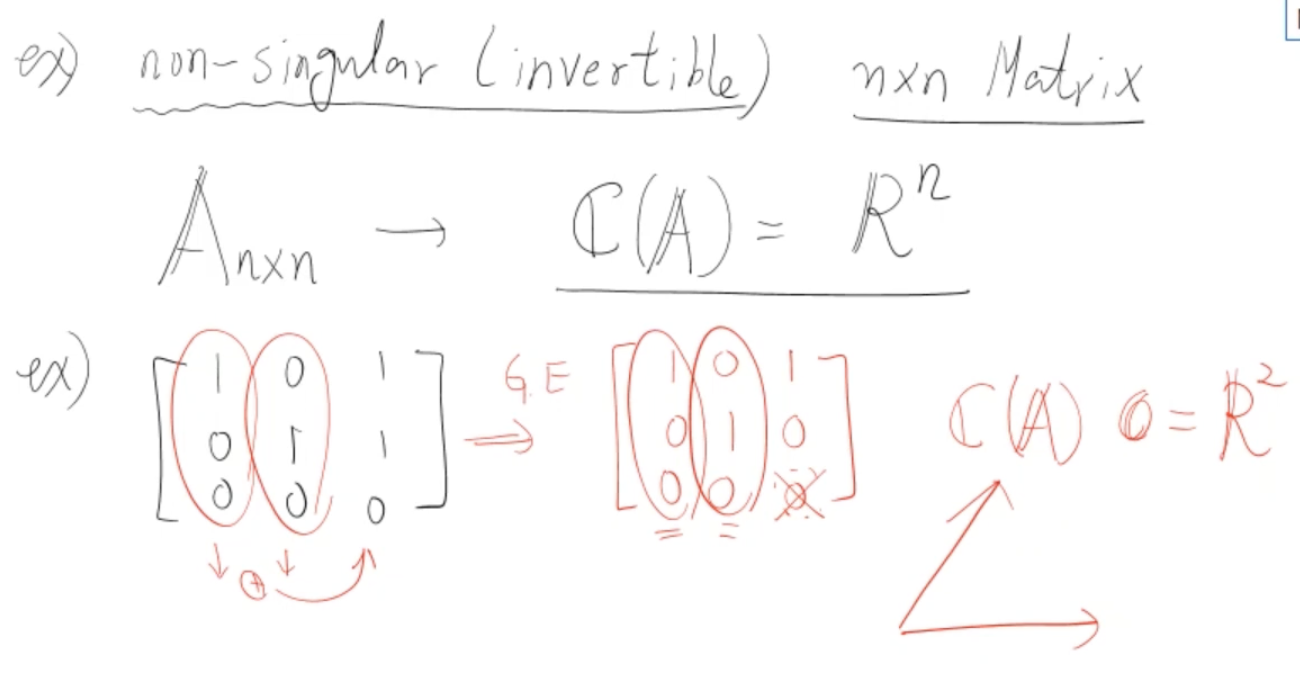 ex) non-singular (invertible) nxn Matrix
Anxn → C(A) = Rⁿ
ex) [ 1 0 1 ⇒ G.E [ 1 0 1 C(A) = R²
0 1 1 0 1 0
0 0 0 ] 0 0 0 ]